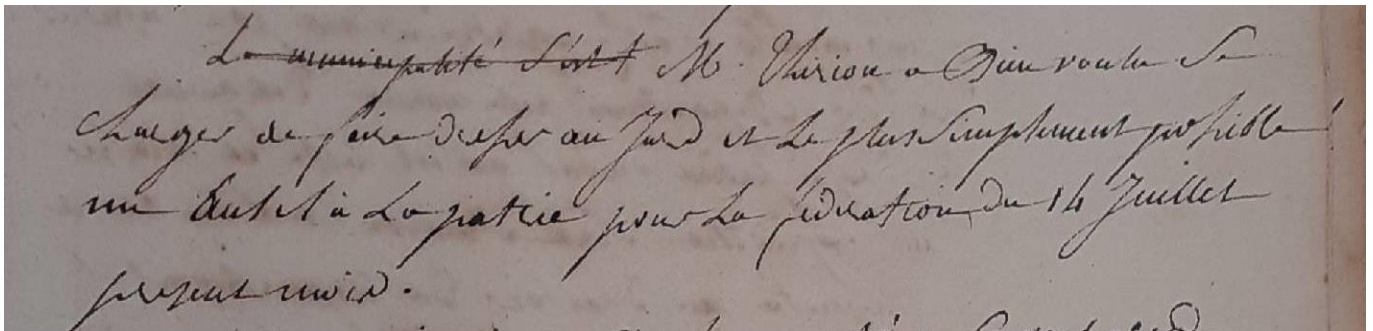 La municipalité S'est M. Thirion a Bien voulu Se
charger de faire dresser au Jard et Le plus Simplement possible
un Autel à La patrie pour La féderation du 14 Juillet
present mois.